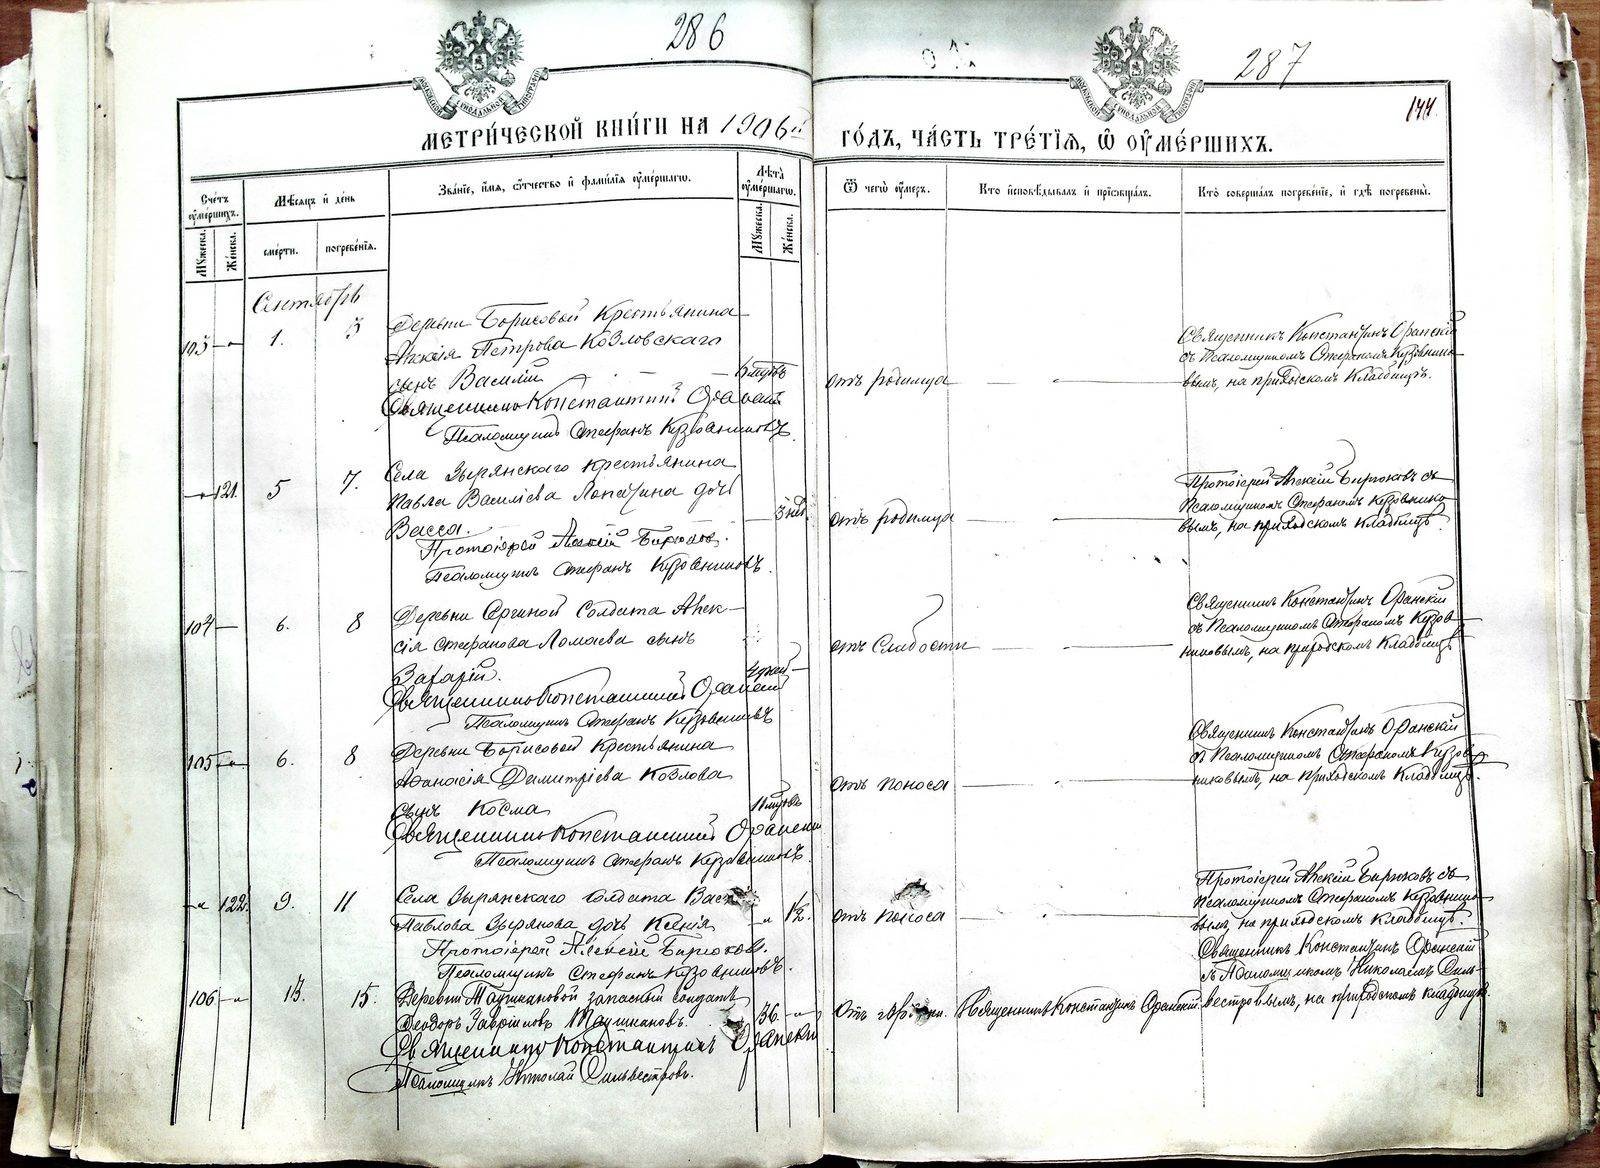 286
287
144
МЕТРИ́ЧЕСКОЙ КНИ́ГИ НА 1906й ГО́ДЪ, ЧА́СТЬ ТРЕ́ТІѦ, Ѿ ОУМЕ́РШИХЪ.
Сче́тъ оуме́ршихъ.
Мѣ́сѧцъ и де́нь
Зва́нїе, и́мѧ, ѻ҆́тчество и фами́лїѧ оуме́ршагѡ.
Лѣ́та оуме́ршагѡ.
Ѿ чегѡ̀ оу́меръ.
Кто̀ и҆сповѣ́дывалъ и҆ прїѡбща́лъ.
Кто̀ соверша́лъ погребе́нїе, и҆ гдѣ̀ погребены̀.
Мꙋ́жеска.
Же́нска.
сме́рти.
погребе́нїѧ.
Мꙋ́жеска.
Же́нска.
Сентябрь
103 1. 3 Деревни Борисовой крестьянина
Алексія Петрова Козловскаго
сынъ Василій отъ родимца
Священникъ Константинъ Оранскій
Псаломщикъ Стефанъ Кузовниковъ.
Священникъ Константинъ Оранскій
съ Псаломщикомъ Стефаномъ Кузовнико-
вымъ, на приходскомъ кладбищѣ.
121. 5 7. Села Зырянскаго крестьянина
Павла Василіева Лопатина дочь
Васса. 3 нед. отъ родимца
Протоіерей Алексій Бирюковъ.
Псаломщикъ Стефанъ Кузовниковъ.
Протоіерей Алексій Бирюковъ съ
Псаломщикомъ Стефаномъ Кузовнико-
вымъ, на приходскомъ кладбищѣ.
104 6. 8 Деревни Солдата Алек-
сія Стефанова Ломаева сынъ
Захарій. отъ слабости
Священникъ Константинъ Оранскій
Псаломщикъ Стефанъ Кузовниковъ
Священникъ Константинъ Оранскій
съ Псаломщикомъ Стефаномъ Кузов-
никовымъ, на приходскомъ кладбищѣ
105 6. 8 Деревни Борисовой крестьянина
Афанасія Димитріева Козлова
сынъ Косма отъ поноса
Священникъ Константинъ Оранскій
Псаломщикъ Стефанъ Кузовниковъ.
Священникъ Константинъ Оранскій
съ Псаломщикомъ Стефаномъ Кузов-
никовымъ, на приходскомъ кладбищѣ.
122. 9. 11 Села Зырянскаго солдата
Павлова Зырянова дочь Ксенія отъ поноса
Протоіерей Алексій Бирюковъ.
Псаломщикъ Стефанъ Кузовниковъ.
Протоіерей Алексій Бирюковъ съ
Псаломщикомъ Стефаномъ Кузовнико-
вымъ, на приходскомъ кладбищѣ.
106 13. 15. Деревни Таушкановой запасный солдатъ
Феодоръ Гавріиловъ Таушкановъ. 36. Отъ Священникъ Константинъ Оранскій
Священникъ Константинъ Оранскій
Псаломщикъ Николай Сильвестровъ.
Священникъ Константинъ Оранскій
съ Псаломщикомъ Николаемъ Силь-
вестровымъ, на приходскомъ кладбищѣ.